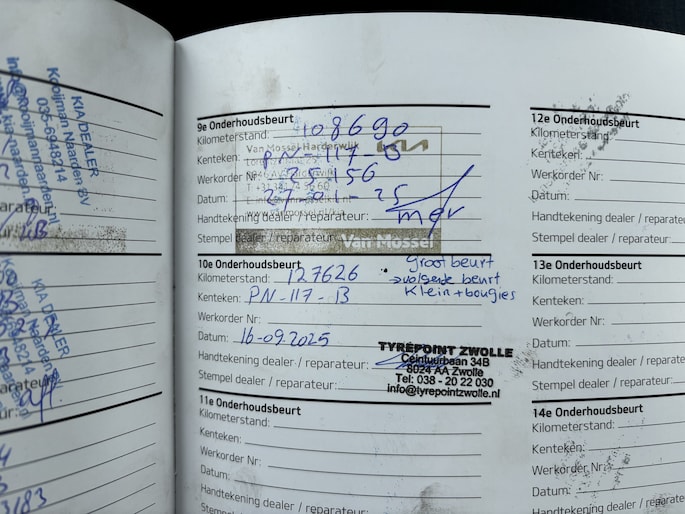 KIA DEALER
Kooijman Naarden BV
035-6948214
info@kooijmannaarden.nl
9e Onderhoudsbeurt
Kilometerstand: 108690
Van Mossel Harderwijk
Kenteken: PN-117-B
Werkorder Nr: 25156
Datum: 27-01-25
Handtekening dealer / reparateur:
Stempel dealer / reparateur: Van Mossel
10e Onderhoudsbeurt
Kilometerstand: 127626
Kenteken: PN-117-B
Werkorder Nr:
Datum: 16-09-2025
Handtekening dealer / reparateur:
Stempel dealer / reparateur:
groot beurt
→ volgende beurt
Klein + bougies
TYREPOINT ZWOLLE
Ceintuurbaan 34B
8024 AA Zwolle
Tel: 038 - 20 22 030
info@tyrepointzwolle.nl
11e Onderhoudsbeurt
Kilometerstand:
Kenteken:
Werkorder Nr:
Datum:
Handtekening dealer / reparateur:
Stempel dealer / reparateur:
12e Onderhoudsbeurt
Kilometerstand:
Kenteken:
Werkorder Nr:
Datum:
Handtekening dealer
Stempel dealer / re
13e Onderhoudsbeurt
Kilometerstand:
Kenteken:
Werkorder Nr:
Datum:
Handtekening dealer /
Stempel dealer / repa
14e Onderhoudsbeurt
Kilometerstand:
Kenteken:
Werkorder Nr:
Datum:
Handtekening dealer / r